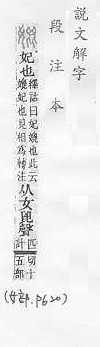 說文解字
段注本
妃也釋詁曰妃媲也此云媲妃也是相爲轉注从女𣬉聲匹計切十五部
(女部.P620)